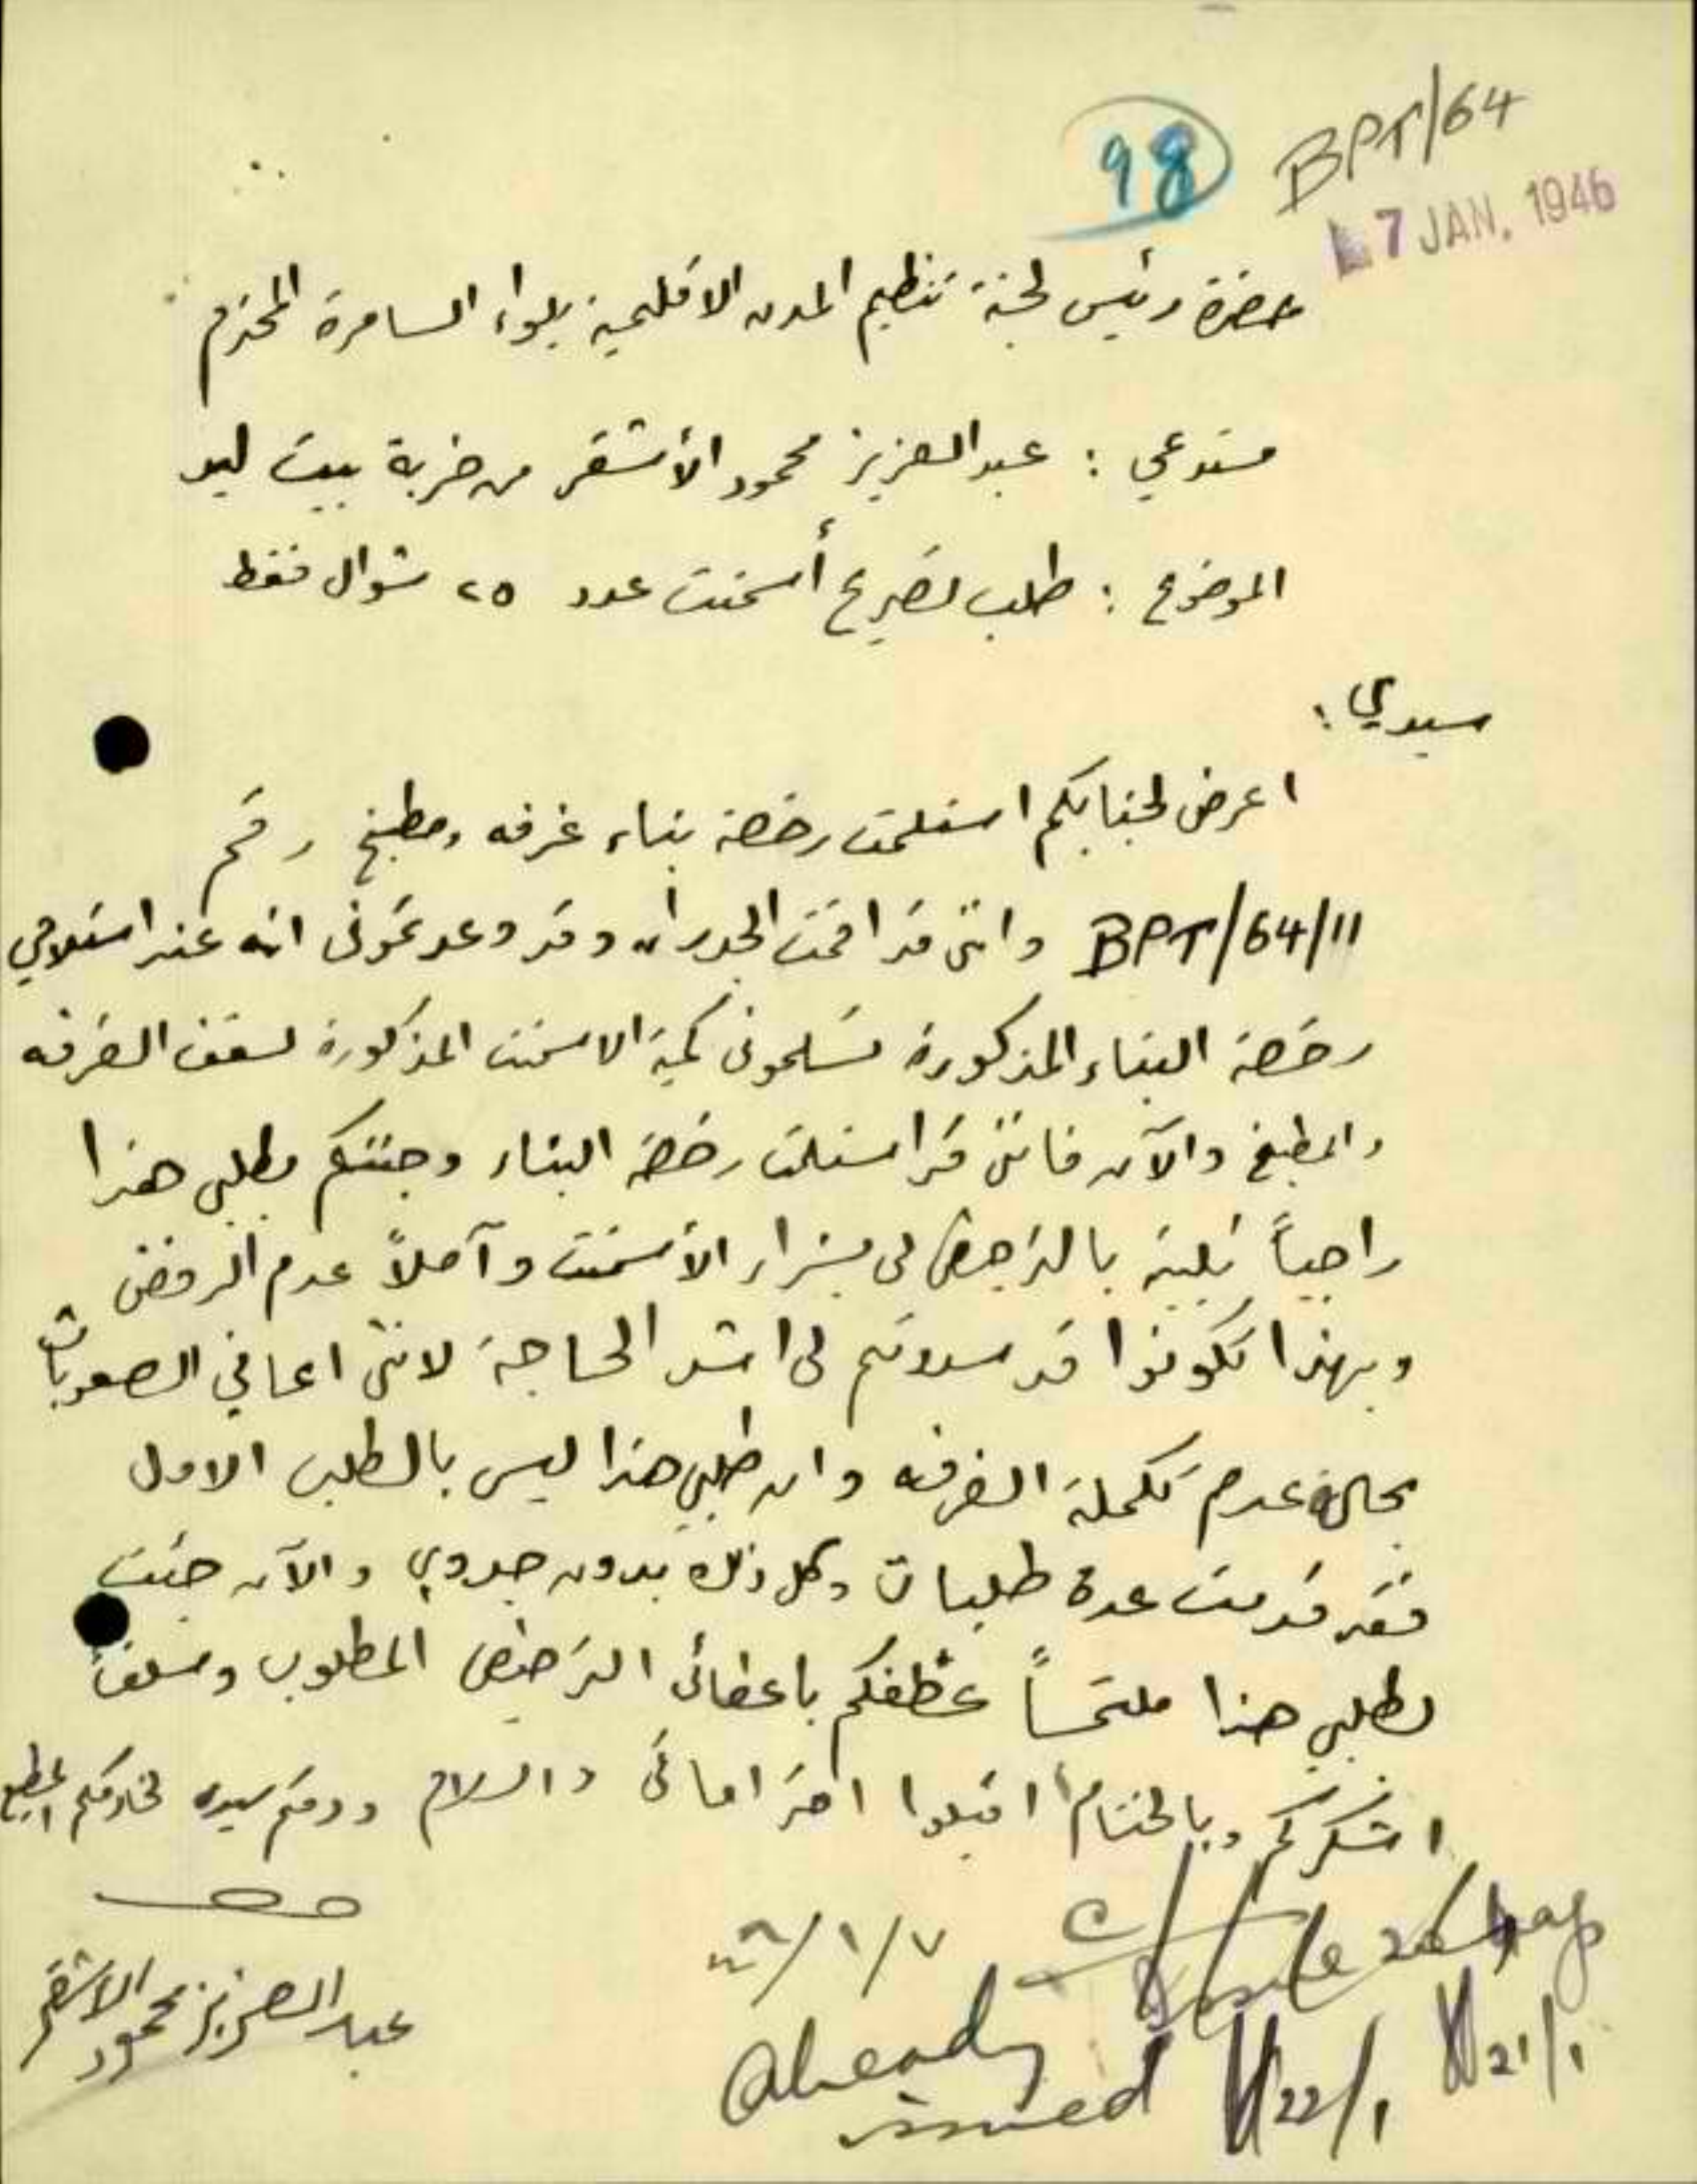 98
BPT/64
7 JAN. 1946
حضرة رئيس لجنة تنظيم المدن الاقليمية بلواء السامرة المحترم
مستدعي : عبد العزيز محمود الأشقر من خربة بيت ليد
الموضوع : طلب تصريح أسمنت عدد ٢٥ شوال فقط
سيدي :
اعرض لجنابكم استلمت رخصة بناء غرفه ومطبخ رقم
BPT/64/11 وانني قد اقمت الجدران وقد وعدتموني انه عند استلامي
رخصة البناء المذكورة تسلموني كمية الاسمنت المذكورة لسقف الغرفه
والمطبخ والآن فانني قد استلمت رخصة البناء وجئتكم بطلبي هذا
راجياً تلبيته بالترخيص لي بشراء الأسمنت وآملاً عدم الرفض
وبهذا تكونوا قد سددتم لي اشد الحاجة لانني اعاني الصعوبات
بحالة عدم تكملة الغرفه وان طلبي هذا ليس بالطلب الاول
فقد قدمت عدة طلبات وكل ذلك بدون جدوي والآن جئت
بطلبي هذا ملتمساً عطفكم باعطائي الترخيص المطلوب وسلفاً
اشكركم وبالختام اقبلوا احتراماتي والسلام ودمتم سيدي لخادمكم المطيع
٤٦/١/٧
عبد العزيز محمود الاشقر
Already
issued
22/1
21/1